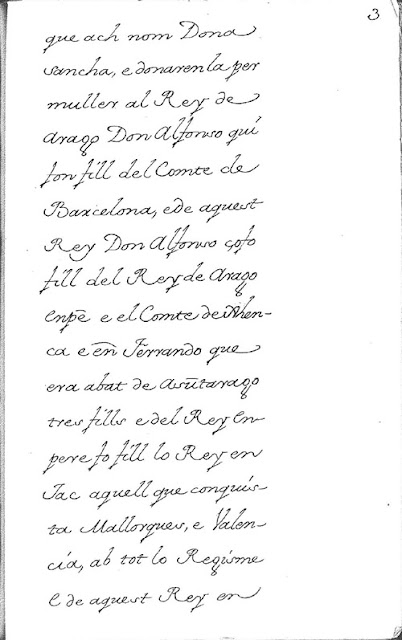 3
que ach nom Dona
Sancha, e donaren la per
muller al Rey de
Arago Don Alfonso qui
fon fill del Comte de
Barcelona, e de aquest
Rey Don Alfonso ço fo
fill del Rey de Arago
Enpē e el Comte de
ca e en̄ Ferrando que
era abat de
tres fills e del Rey En
pere fo fill lo Rey en
Jac aquell que conquis-
ta Mallorques, e Valen-
cia, ab tot lo Regisme
E de aquest Rey en